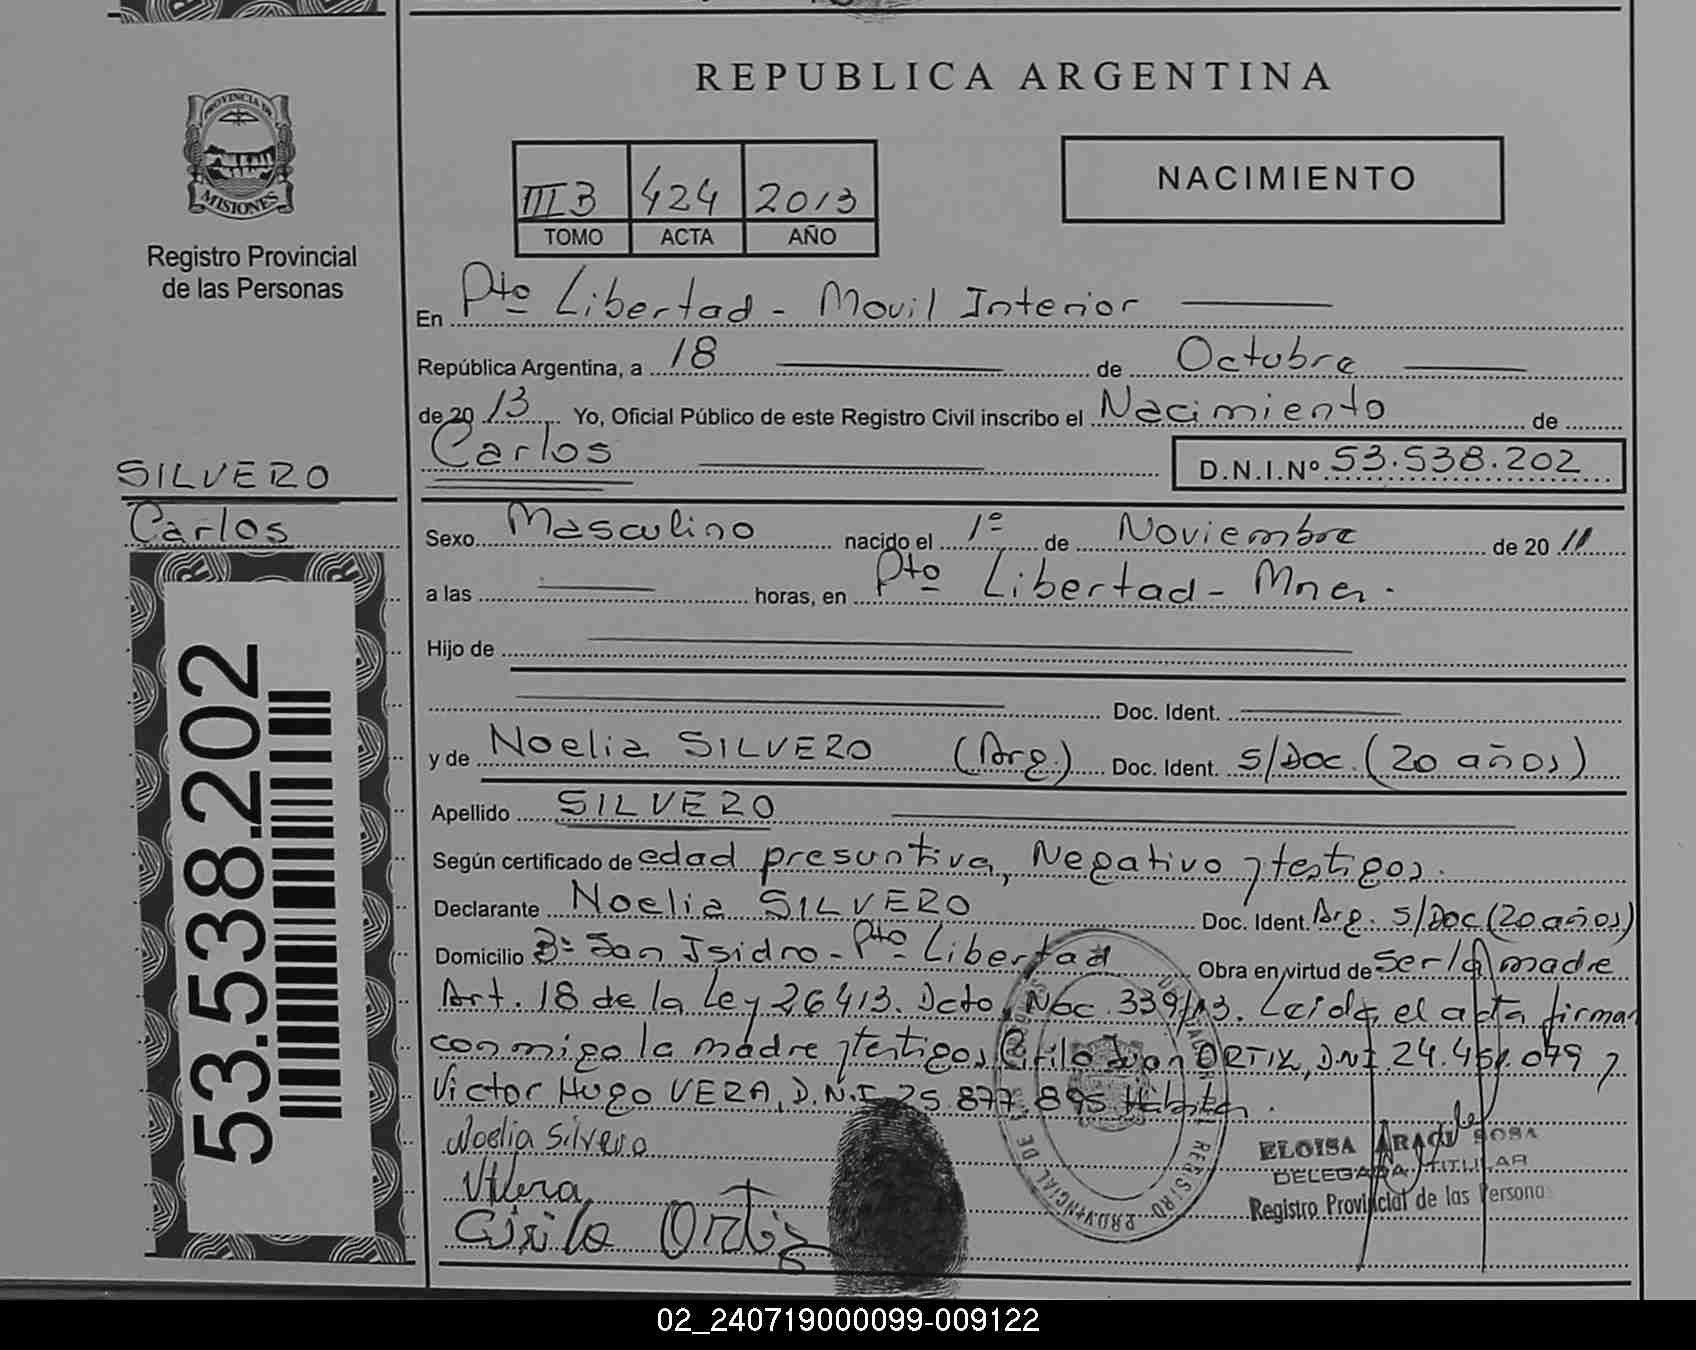 REPUBLICA ARGENTINA
PROVINCIA DE
MISIONES
Registro Provincial
de las Personas
III B 424 2013
TOMO ACTA AÑO
NACIMIENTO
En Pto Libertad - Movil Interior
República Argentina, a 18 de Octubre
de 20 13 Yo, Oficial Público de este Registro Civil inscribo el Nacimiento de
Carlos
D.N.I.Nº 53.538.202
SILVERO
Carlos
53.538.202
Sexo Masculino nacido el 1º de Noviembre de 20 11
a las horas, en Pto Libertad - Mnes.
Hijo de
Doc. Ident.
y de Noelia SILVERO (Arg.) Doc. Ident. S/Doc. (20 años)
Apellido SILVERO
Según certificado de edad presuntiva, Negativo y testigos.
Declarante Noelia SILVERO Doc. Ident. Arg. S/Doc (20 años)
Domicilio Bº San Isidro - Pto Libertad Obra en virtud de Ser la madre
Art. 18 de la Ley 26413. Dcto. Nac. 339/13. Leída el acta firman
conmigo la madre y testigos Cirilo Juan ORTIZ, DNI 24.451.079 y
Victor Hugo VERA, D.N.I 25.877.895
Noelia Silvero
VHVera
Cirilo Ortiz
ELOISA ARACI SOSA
DELEGADA TITULAR
Registro Provincial de las Personas
REGISTRO PROVINCIAL DE
02_240719000099-009122